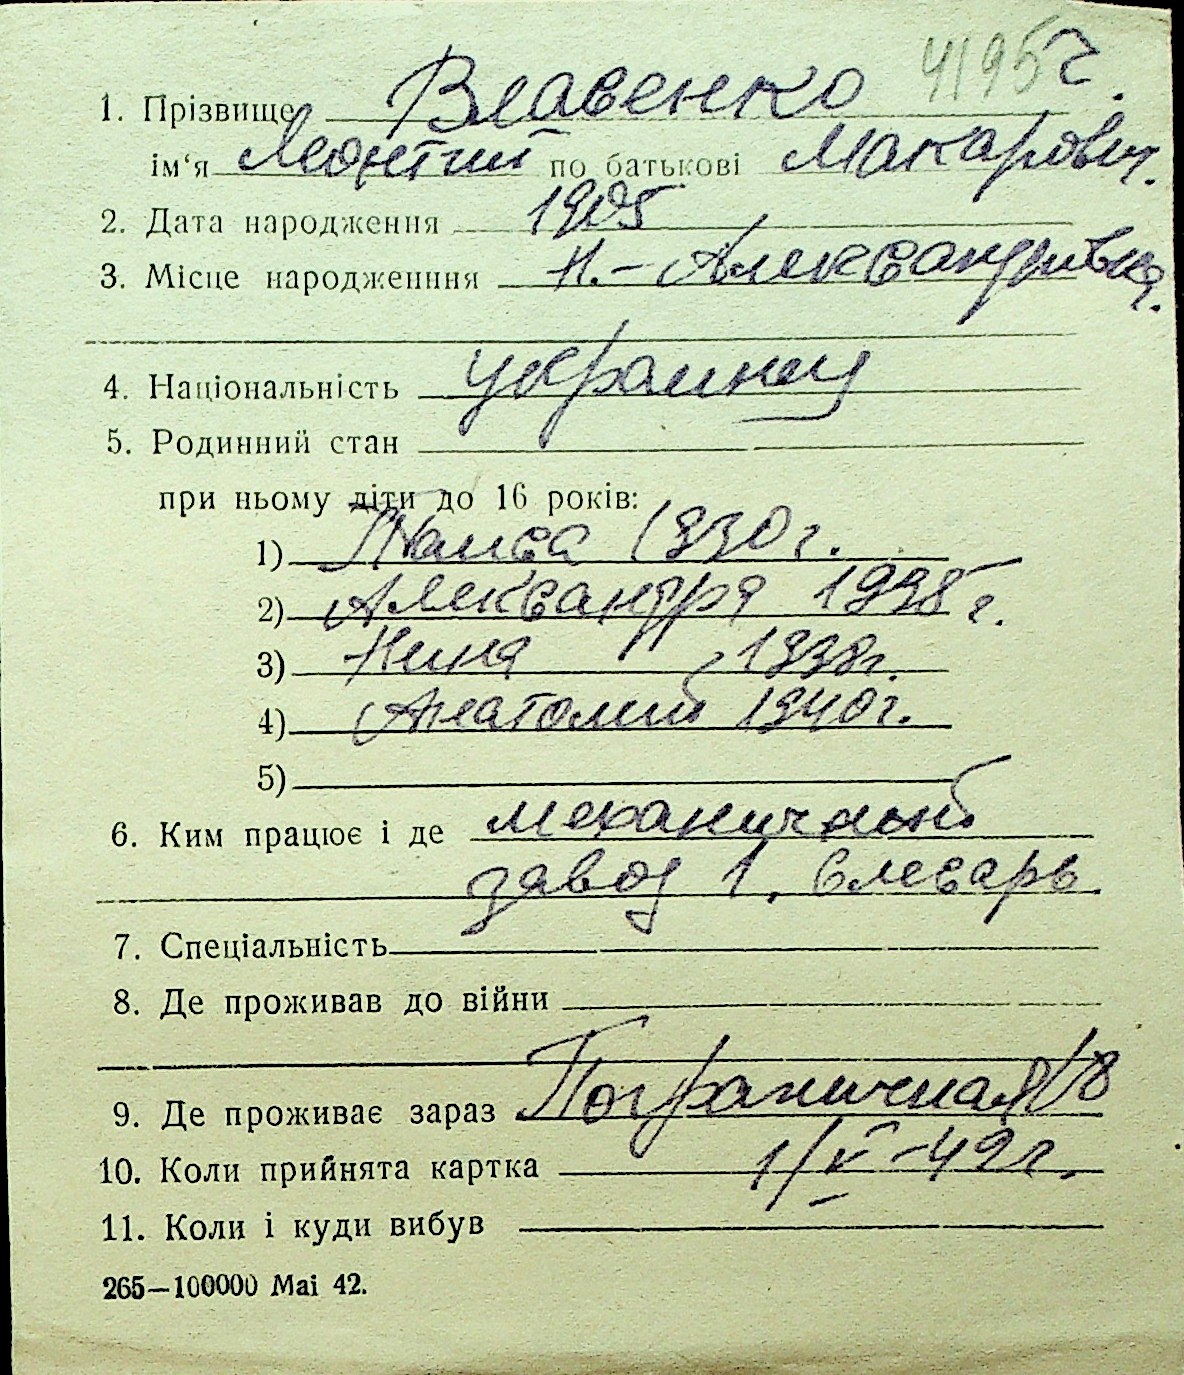 41957.
1. Прізвище Влавенко
ім‘я Леонтий по батькові Макарович.
2. Дата народження 1905
3. Місце народженння Н.-Александрівка.
4. Національність украинец
5. Родинний стан
при ньому діти до 16 років:
1) Таиса 1930 г.
2) Александра 1938 г.
3) Нина 1938 г.
4) Анатолий 1940 г.
5)
6. Ким працює і де механичный
завод 1, слесарь.
7. Спеціальність
8. Де проживав до війни
9. Де проживає зараз Пограничная
10. Коли прийнята картка 1/V-42 г.
11. Коли і куди вибув
265—100000 Mai 42.